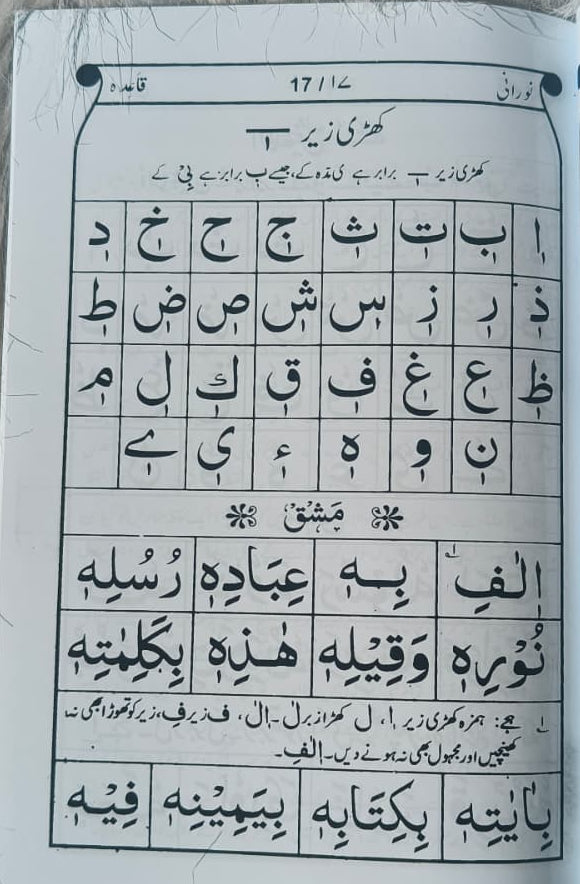 نورانی 17/۱۷ قاعدہ
کھڑی زیر ـٖـ
کھڑی زیر ـٖـ برابر ہے ی مدّہ کے، جیسے بٖ برابر ہے بِیْ کے
اٖ بٖ تٖ ثٖ جٖ حٖ خٖ دٖ
ذٖ رٖ زٖ سٖ شٖ صٖ ضٖ طٖ
ظٖ عٖ غٖ فٖ قٖ كٖ لٖ مٖ
نٖ وٖ ہٖ ءٖ یٖ ےٖ
مَشْق
اٖلٰفِ ۱ بِهٖ عِبَادِهٖ رُسُلِهٖ
نُوْرِهٖ وَقِيْلِهٖ هٰذِهٖ بِكَلِمٰتِهٖ
۱ ہجے: ہمزہ کھڑی زیر اٖ، ل کھڑا زبر لٰ۔ اٖلٰ، ف زیر فِ، زیر کو تھوڑا بھی نہ
کھینچیں اور مجہول بھی نہ ہونے دیں۔ اٖلٰفِ۔
بِاٰيٰتِهٖ بِكِتَابِهٖ بِيَمِيْنِهٖ فِيْهٖ